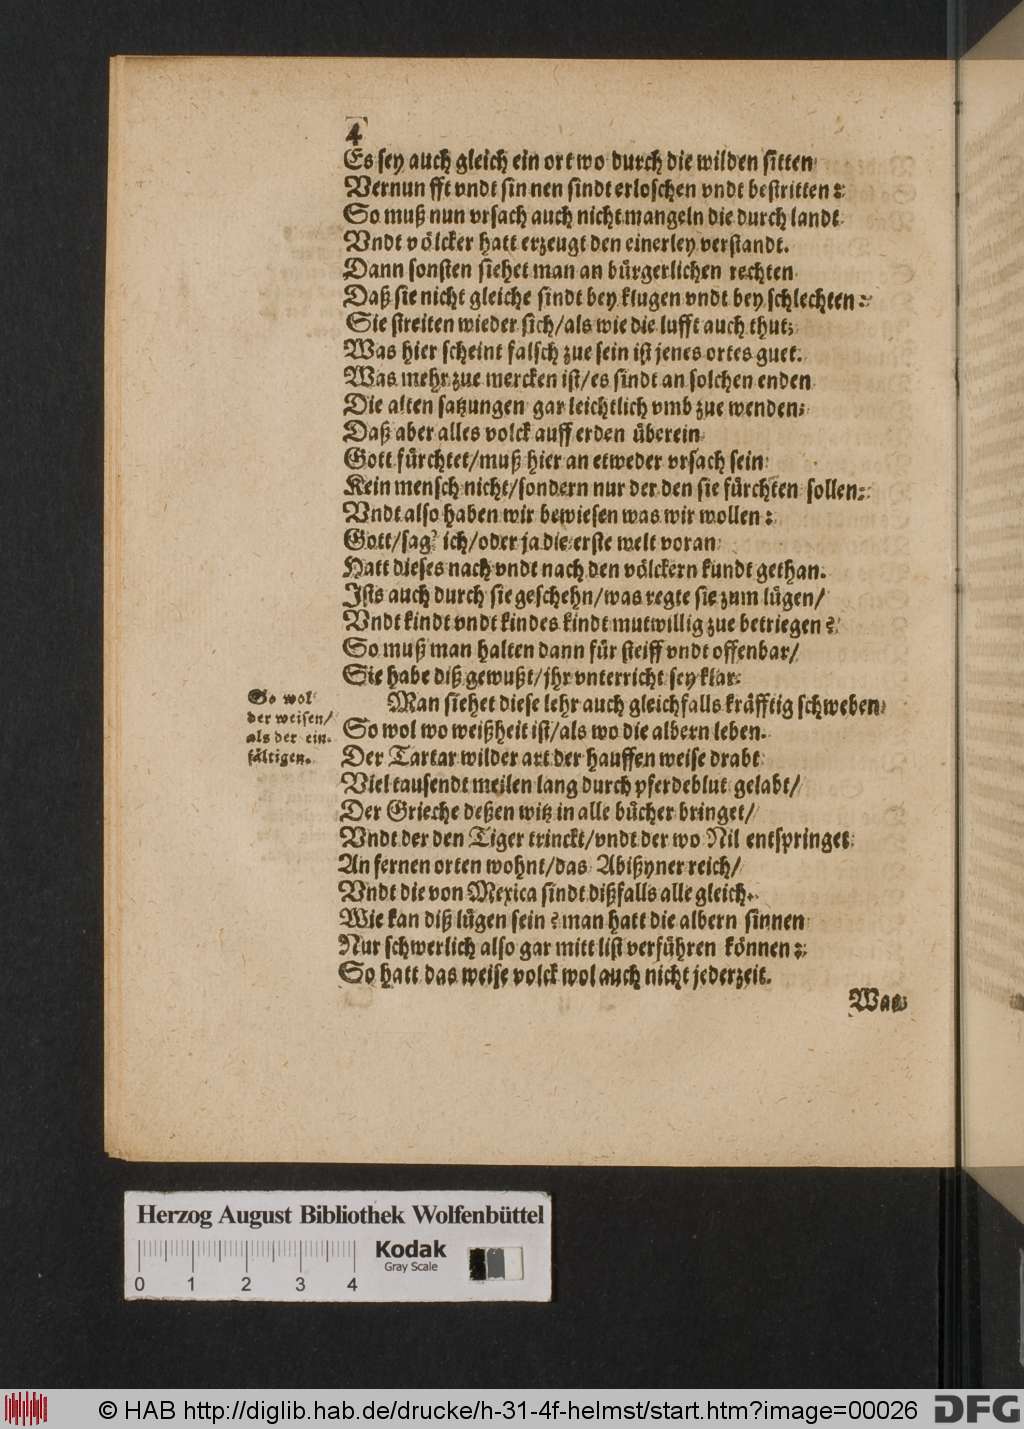 4
Es sey auch gleich ein ort wo durch die wilden sitten
Vernunfft vndt sinnen sindt erloschen vndt bestritten:
So muß nun vrsach auch nicht mangeln die durch landt
Vndt völcker hatt erzeugt den einerley verstandt.
Dann sonsten siehet man an bürgerlichen rechten
Daß sie nicht gleiche sindt bey klugen vndt bey schlechten:
Sie streiten wieder sich/als wie die lufft auch thut;
Was hier scheint falsch zue sein ist jenes ortes guet.
Was mehr zue mercken ist/es sindt an solchen enden
Die alten satzungen gar leichtlich vmb zue wenden;
Daß aber alles volck auff erden überein
Gott fürchtet/muß hier an etweder vrsach sein
Kein mensch nicht/sondern nur der den sie fürchten sollen:
Vndt also haben wir bewiesen was wir wollen:
Gott/sag' ich/oder ja die erste welt voran
Hatt dieses nach vndt nach den völckern kundt gethan.
Ists auch durch sie geschehn/was regte sie zum lügen/
Vndt kindt vndt kindes kindt mutwillig zue betriegen?
So muß man halten dann für steiff vndt offenbar/
Sie habe diß gewußt/jhr vnterricht sey klar.
So wol
der weisen/
als der ein-
fältigen.
Man siehet diese lehr auch gleichfalls kräfftig schweben
So wol wo weißheit ist/als wo die albern leben.
Der Tartar wilder art der hauffen weise drabt
Viel tausendt meilen lang durch pferdeblut gelabt/
Der Grieche deßen witz in alle bücher bringet/
Vndt der den Tiger trinckt/vndt der wo Nil entspringet
An fernen orten wohnt/das Abißyner reich/
Vndt die von Mexica sindt dißfalls alle gleich.
Wie kan diß lügen sein? man hatt die albern sinnen
Nur schwerlich also gar mitt list verführen können:
So hatt das weise volck wol auch nicht jederzeit.
Was
Herzog August Bibliothek Wolfenbüttel
Kodak
Gray Scale
0 1 2 3 4
© HAB http://diglib.hab.de/drucke/h-31-4f-helmst/start.htm?image=00026
DFG